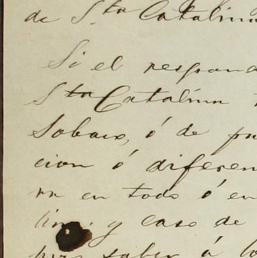 de Sta Catalina
Si el respond
Sta Catalina
Sobaco, ó de
cion ó diferen
ra en todo ó en
y caso de
saber á lo